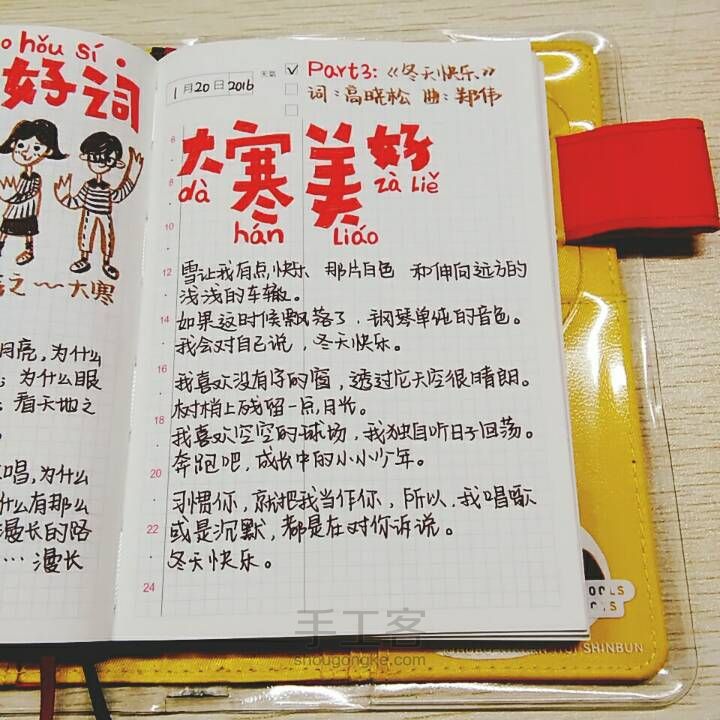 o hǒu sí
好词
之~~大寒
月亮,为什么
;为什么眼
:看天地之
唱,为什么
什么有那么
漫长的路
…漫长
1月20日2016
天气
Part3:《冬天快乐》
词:高晓松 曲:郑伟
大寒美好
dà hán liáo zà liě
6
8
10
12
14
16
18
20
22
24
雪让我有点快乐 那片白色 和伸向远方的
浅浅的车辙。
如果这时候飘落了,钢琴单纯的音色。
我会对自己说,冬天快乐。
我喜欢没有字的窗,透过它天空很晴朗。
树梢上残留一点月光。
我喜欢空空的球场,我独自听日子回荡。
奔跑吧,成长中的小小少年。
习惯你,就把我当作你,所以,我唱歌
或是沉默,都是在对你诉说。
冬天快乐。
手工客
shougongke.com
SHINBUN